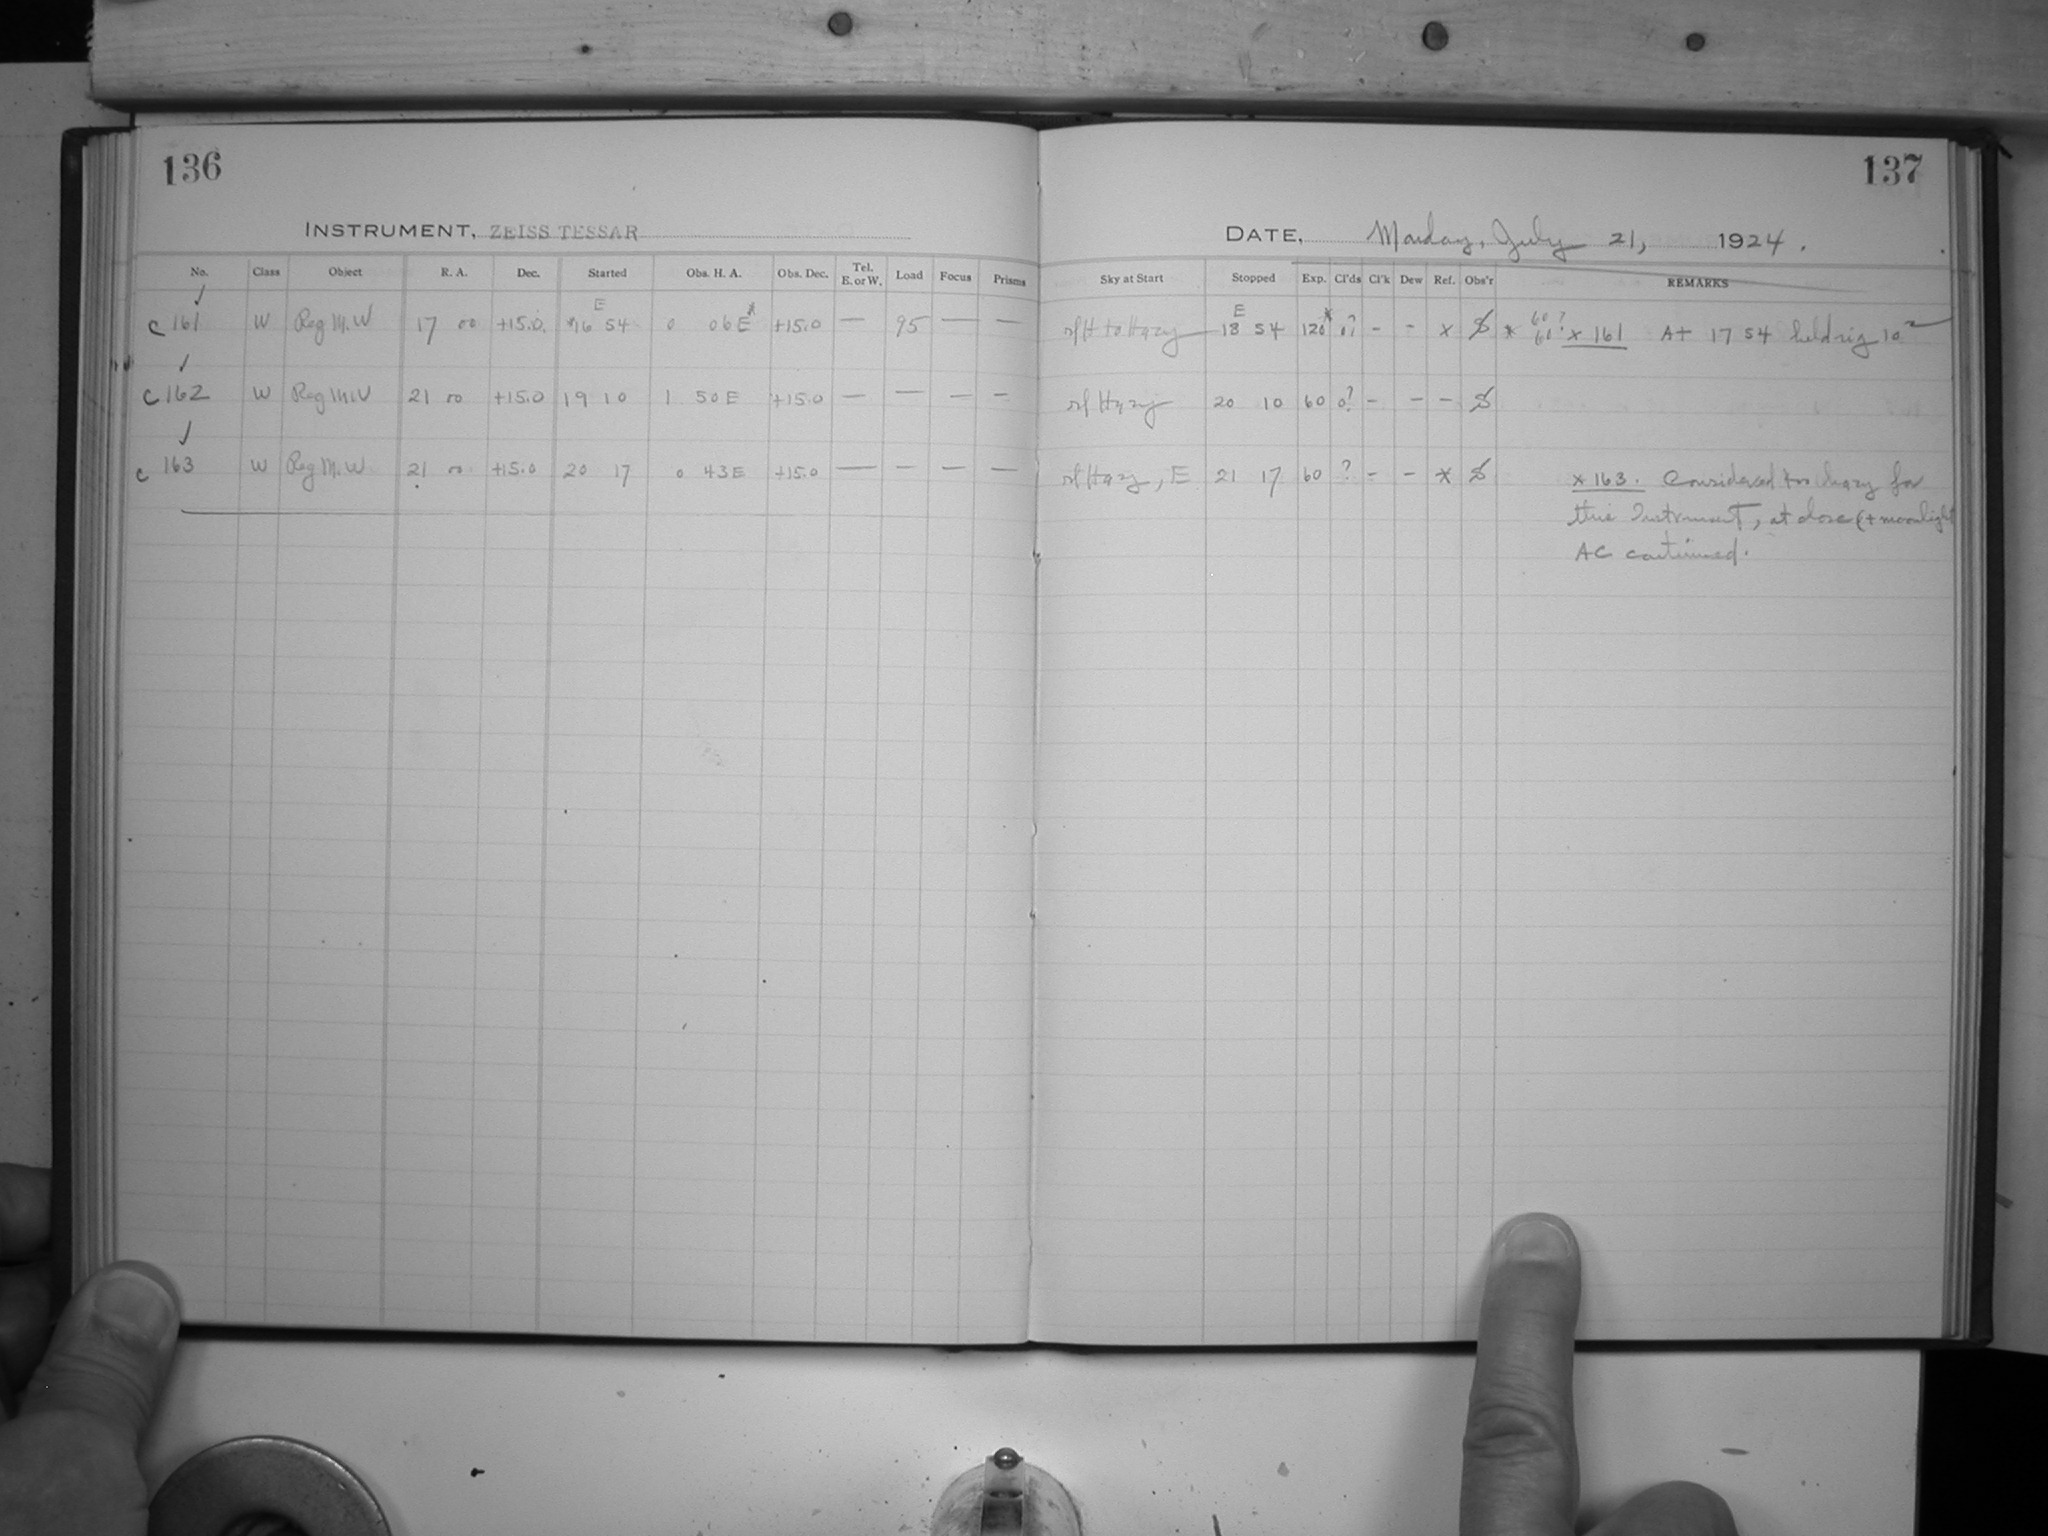 136
137
INSTRUMENT, ZEISS TESSAR
DATE, Monday, July 21, 1924.
No. Class Object R. A. Dec. Started Obs. H. A. Obs. Dec. Tel. E. or W. Load Focus Prisms
Sky at Start Stopped Exp. Cl'ds Cl'k Dew Ref. Obs'r REMARKS
E E 60?
c 161 W Reg M.W 17 00 +15.0 *16 54 0 06E* +15.0 — 95 — — H to Hazy 18 54 120* 0? - - x * 60? x 161 At 17 54 held rig 10
c 162 W Reg M.W 21 00 +15.0 19 10 1 50E +15.0 — — — — Hazy 20 10 60 0? - - -
c 163 W Reg M.W. 21 00 +15.0 20 17 0 43E +15.0 — — — — Hazy, E 21 17 60 ? - - x x 163. Considered too hazy for
this Instrument, at close (+ moonlight
AC continued.